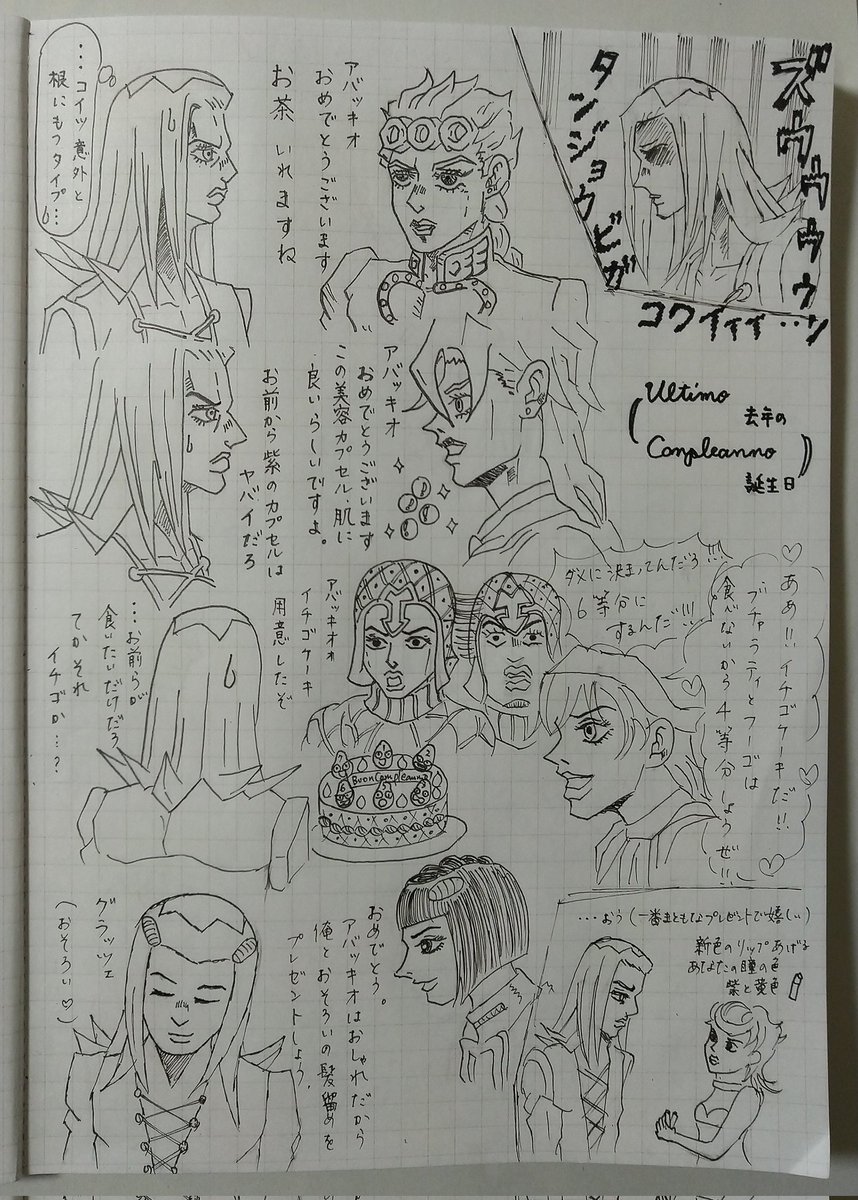 ズウウウウゥゥン
タンジョウビガ
コワイィィ・・
Ultimo
Conpleanno
去年の
誕生日
アバッキオ
おめでとうございます
お茶いれますね
…コイツ意外と
根にもつタイプ…
アバッキオ
おめでとうございます
この美容カプセル、肌に
良いらしいですよ。
お前から紫のカプセルは
ヤバイだろ
あぁ!!イチゴケーキだ!!
ブチャラティとフーゴは
食べないから4等分しようぜ!!
ダメに決まってんだろ!!!
6等分に
するんだ!!!
アバッキオォ
イチゴケーキ
用意したぞ
Buon Compleanno
…お前らが
食いたいだけだろ
てかそれ
イチゴか…?
おめでとう。
アバッキオはおしゃれだから
俺とおそろいの髪留めを
プレゼントしよう。
グラッツェ
(おそろい♡)
…おう(一番まともなプレゼントで嬉しい)
新色のリップあげる
あなたの瞳の色
紫と黄色